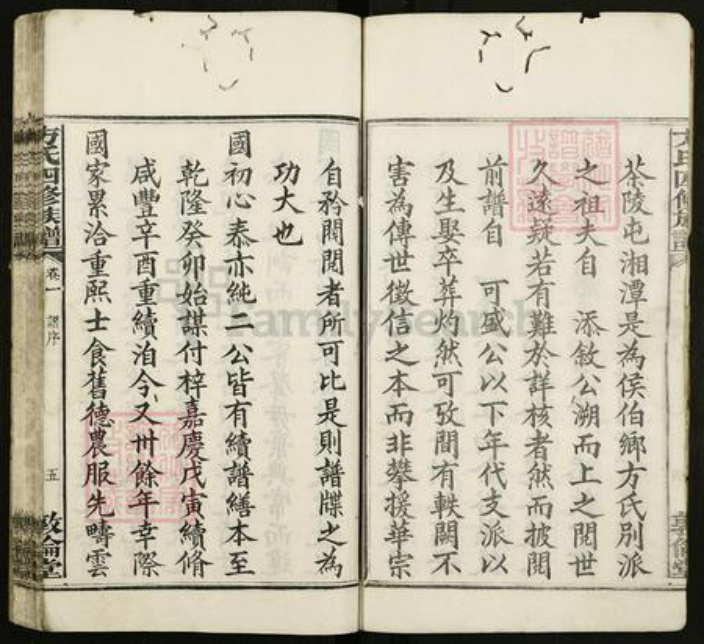 茶陵屯湘潭是為侯伯鄉方氏別派
之祖夫自　添敘公溯而上之閱世
久遠疑若有難於詳核者然而披閱
前譜自　可盛公以下年代支派以
及生娶卒葬灼然可攷間有軼闕不
害為傳世徵信之本而非攀援華宗
自矜閥閱者所可比是則譜牒之為
功大也
國初心泰亦純二公皆有續譜繕本至
乾隆癸卯始謀付梓嘉慶戊寅續脩
咸豐辛酉重續洎今又卅餘年幸際
國家累洽重熙士食舊德農服先疇雲
方氏四修族譜
卷一
譜序
五
敦倫堂
FamilySearch